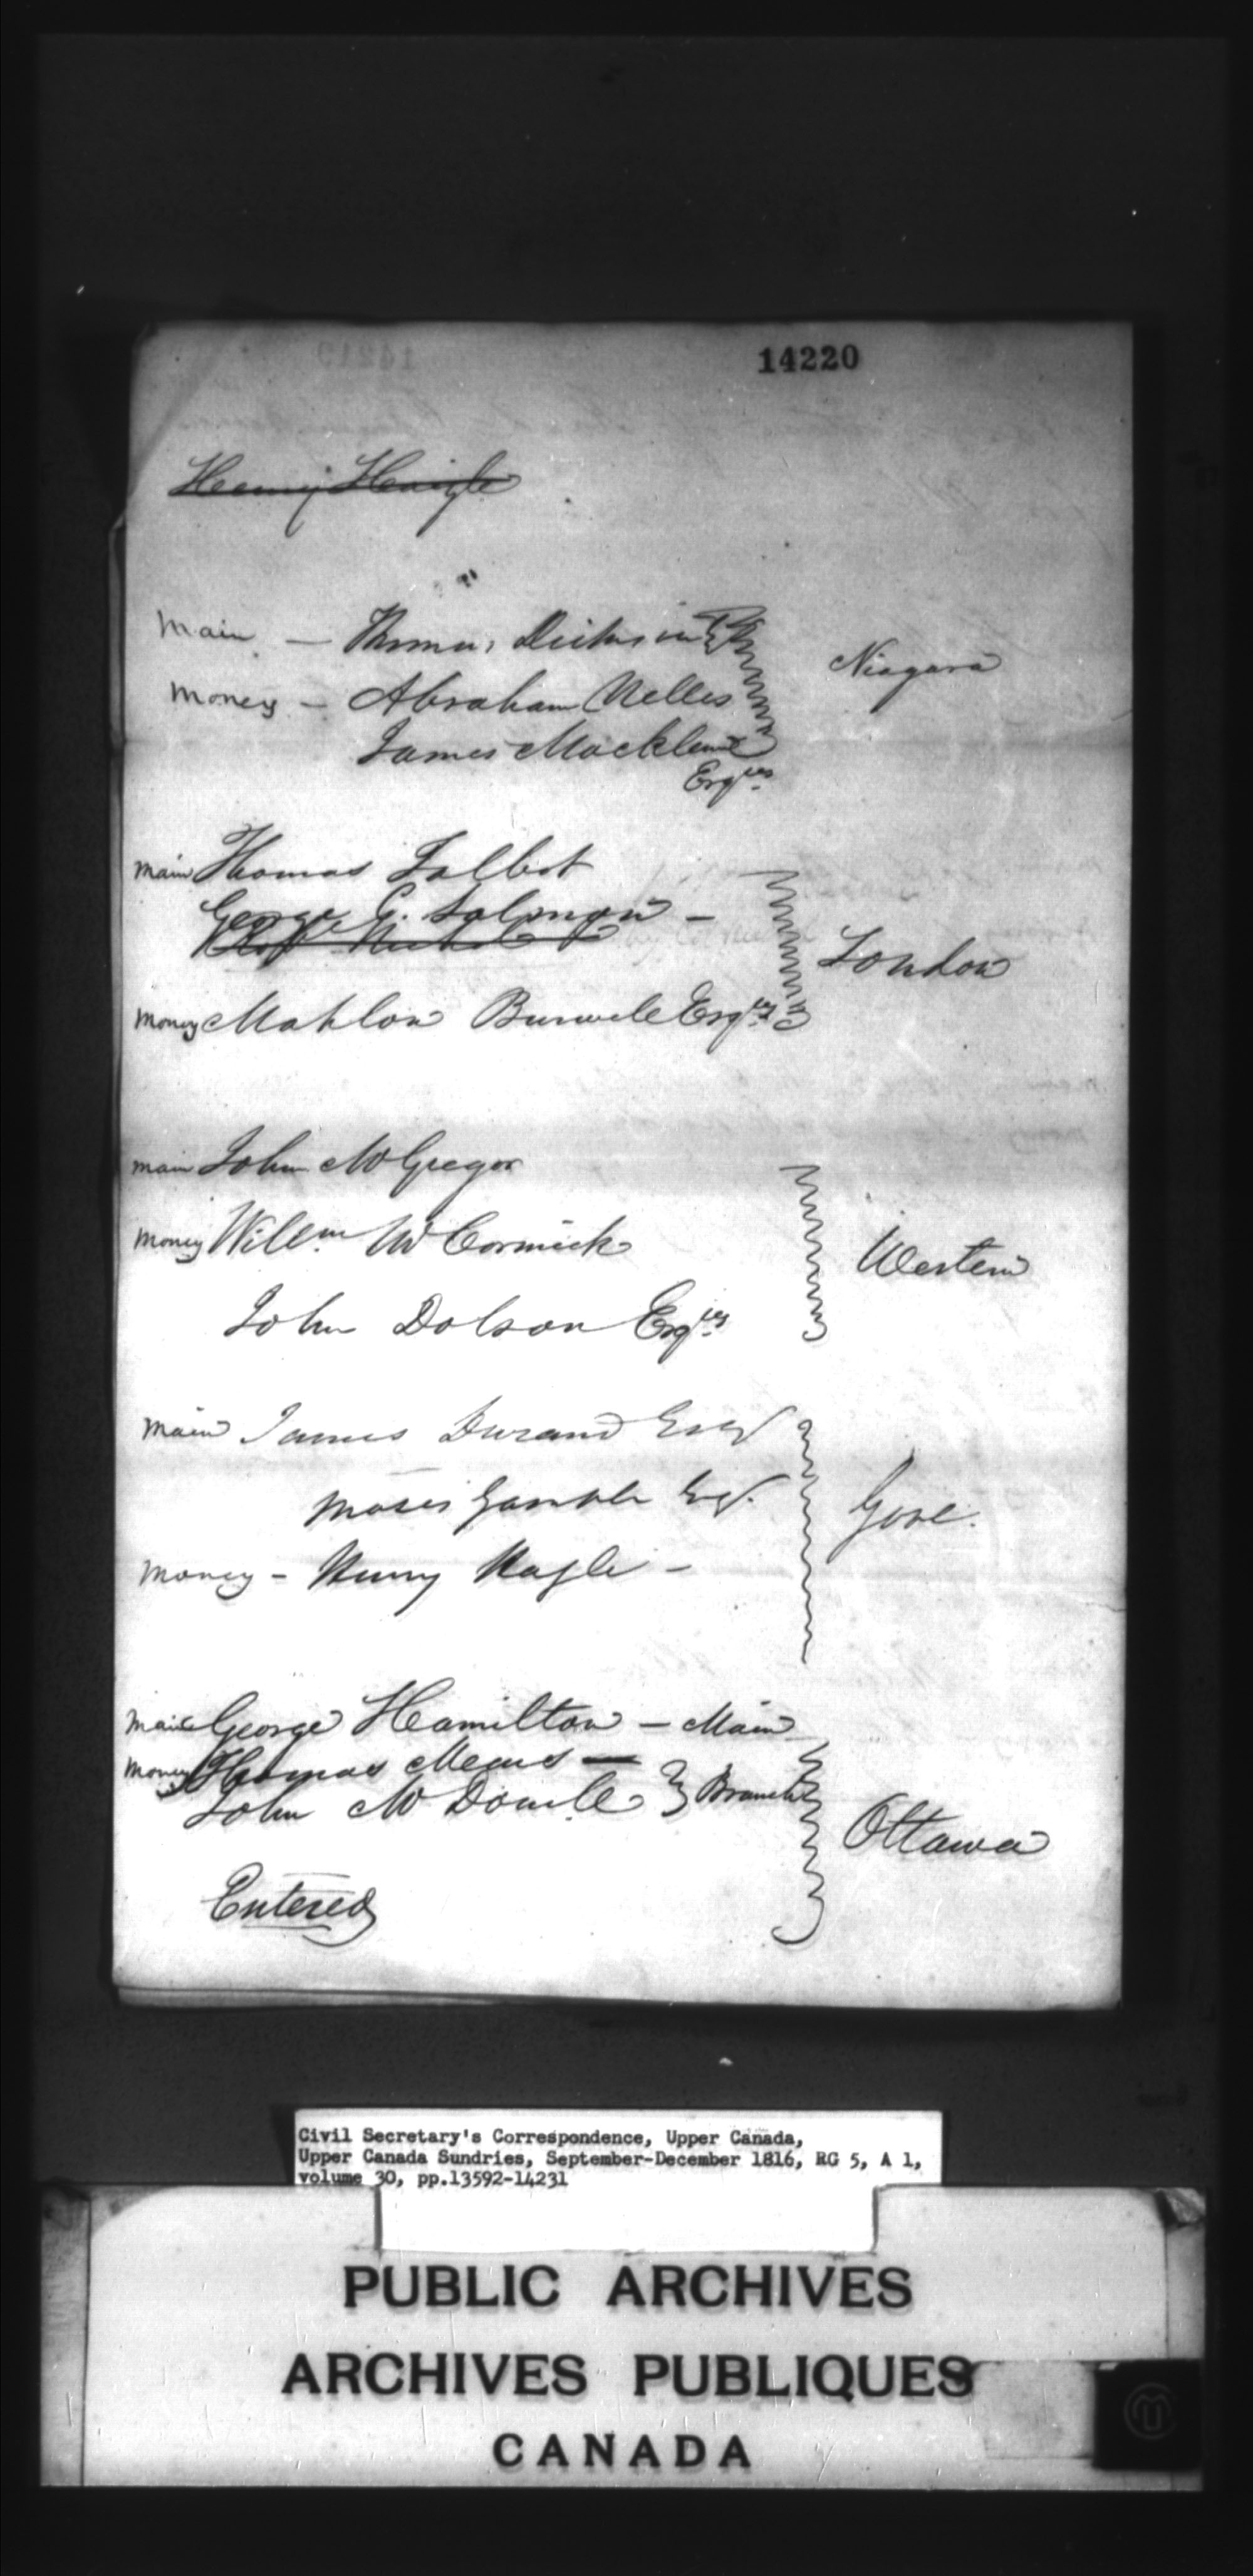 14220
Henry Hagle
Main — Thomas Dickson
Money — Abraham Nelles
James Macklem
Esqres
Niagara
Main Thomas Talbot
George C. Salmon —
Robt Nichol
Money Mahlon Burwell Esqres
London
Main John McGregor
Money Willm McCormick
John Dolson Esqres
Western
Main James Durand Esqr
Moses Gamble Esqr.
Money — Henry Hagle —
Gore.
Main George Hamilton — Main
Money Thomas Mears —
John McDonell
Branch
Ottawa
Entered
Civil Secretary's Correspondence, Upper Canada,
Upper Canada Sundries, September-December 1816, RG 5, A 1,
volume 30, pp.13592-14231
PUBLIC ARCHIVES
ARCHIVES PUBLIQUES
CANADA